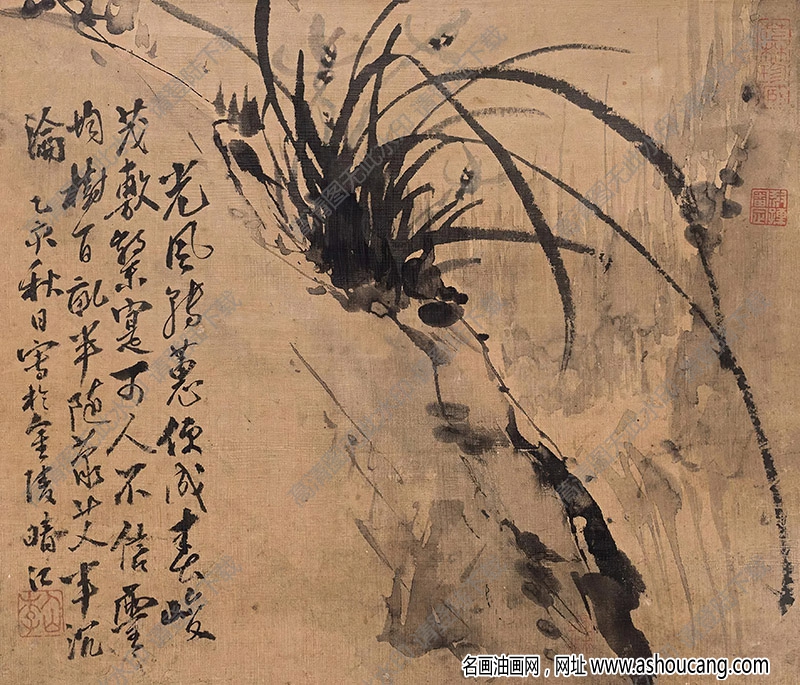 光風轉蕙便成春峻
茂敷繁寔可人不信靈
均樹百畝半隨蕭艾半沉
淪 乙亥秋日寫於金陵晴江
名画油画网，网址 www.ashoucang.com